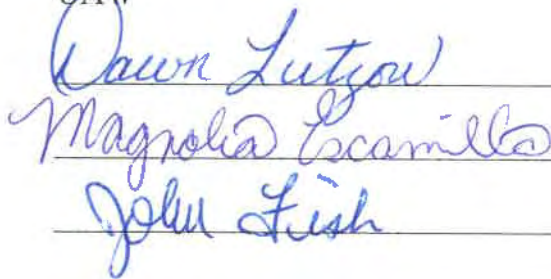 Dawn Lutzow
Magnolia Escamilla
John Fish